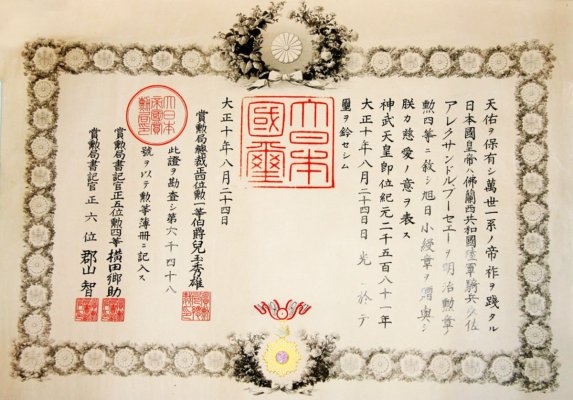 天佑ヲ保有シ萬世一系ノ帝祚ヲ踐タル
日本國皇帝ハ佛蘭西共和國陸軍騎兵少佐
アレクサンドル、ブーセエーヲ明治勲章ノ
勲四等ニ敍シ旭日小綬章ヲ贈與シ
朕カ慈愛ノ意ヲ表ス
神武天皇即位紀元二千五百八十一年
大正十年八月二十四日日光ニ於テ
璽ヲ鈐セシム
大日本
國璽
大正十年八月二十四日
賞勲局總裁正四位勲一等伯爵兒玉秀雄
此證ヲ勘査シ第六千四十八
號ヲ以テ勲等簿册ニ記入ス
賞勲局書記官正五位勲四等橫田鄉助
賞勲局書記官正六位郡山智
大日本